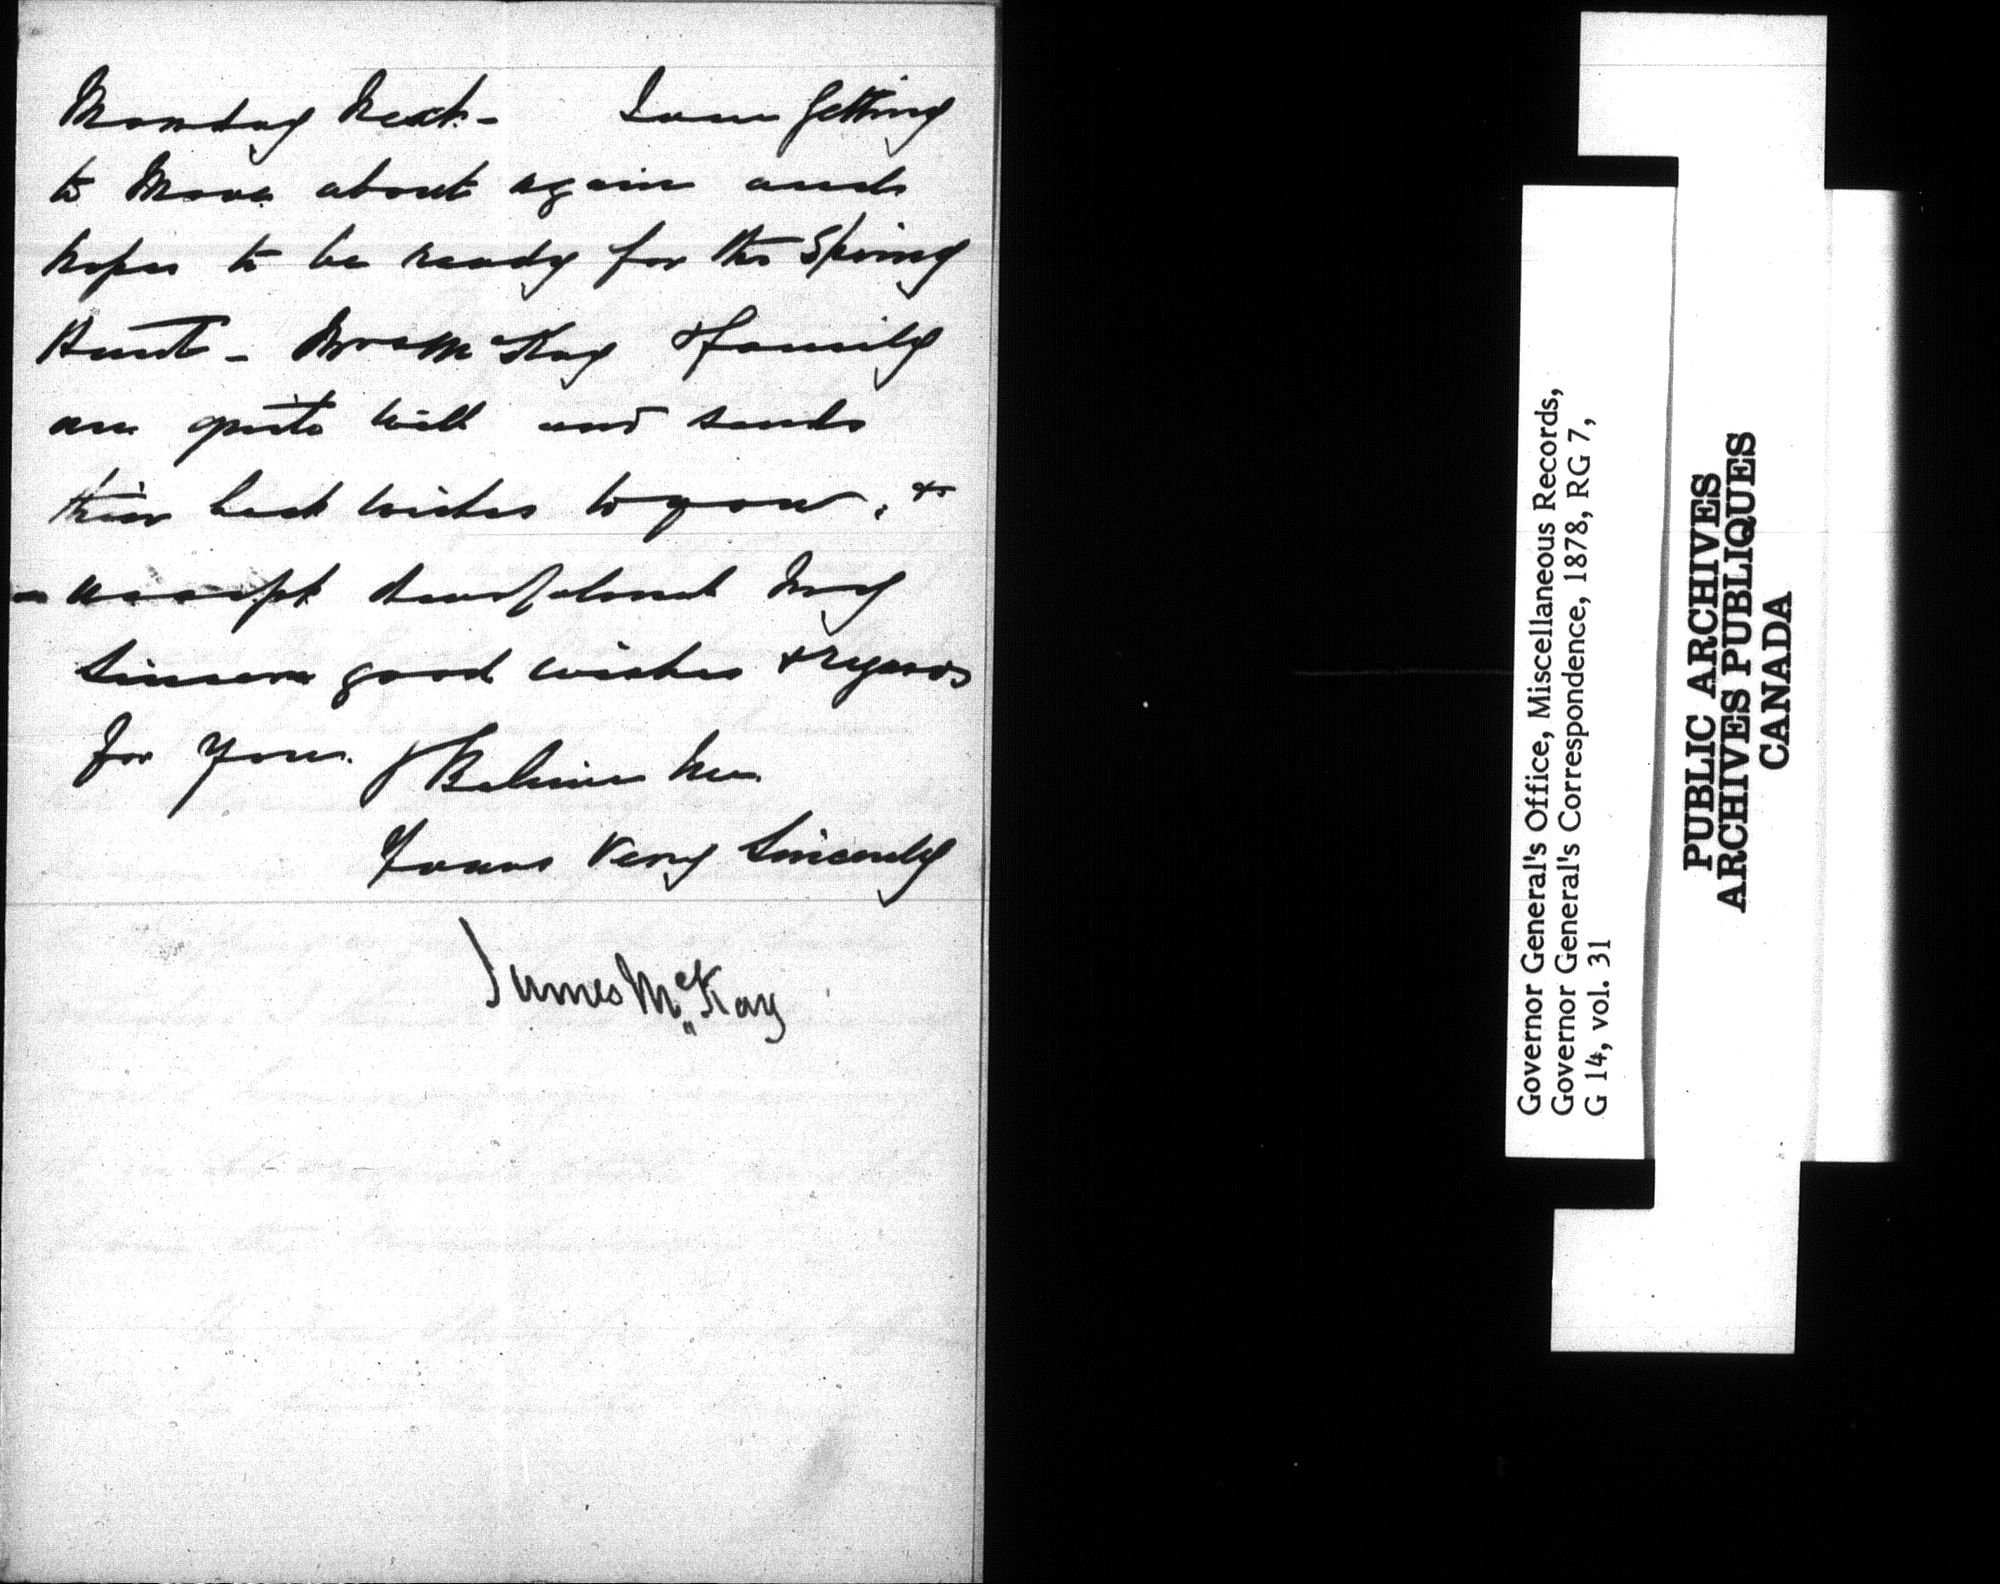 Monday Next - I am Getting
to Move about again and
hopes to be ready for the Spring
Hunt - Mrs McKay & family
are quite well and sends
their best wishes to you, &
accept dear Colonel My
Sincere good wishes & regards
for you. & Believe Me
Yours Very Sincerely
James McKay
Governor General's Office, Miscellaneous Records,
Governor General's Correspondence, 1878, RG 7,
G 14, vol. 31
PUBLIC ARCHIVES
ARCHIVES PUBLIQUES
CANADA